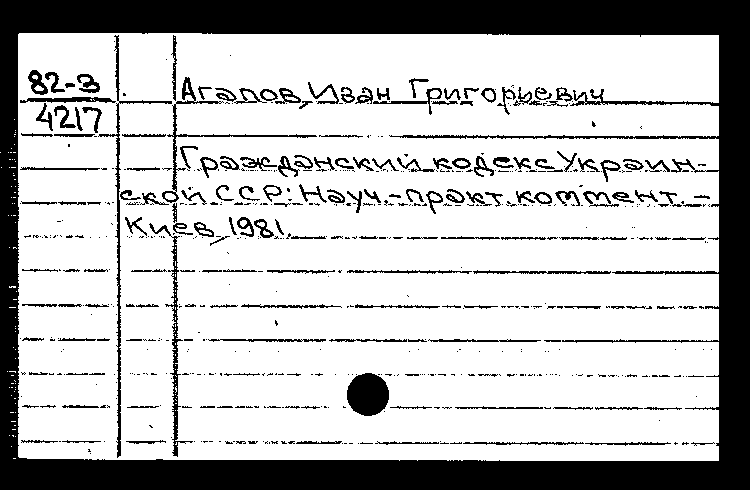 82-3
4217
Агапов, Иван Григориевич
Гражданский кодекс Украин-
ской ССР: Науч.-практ. коммент. -
Киев, 1981.